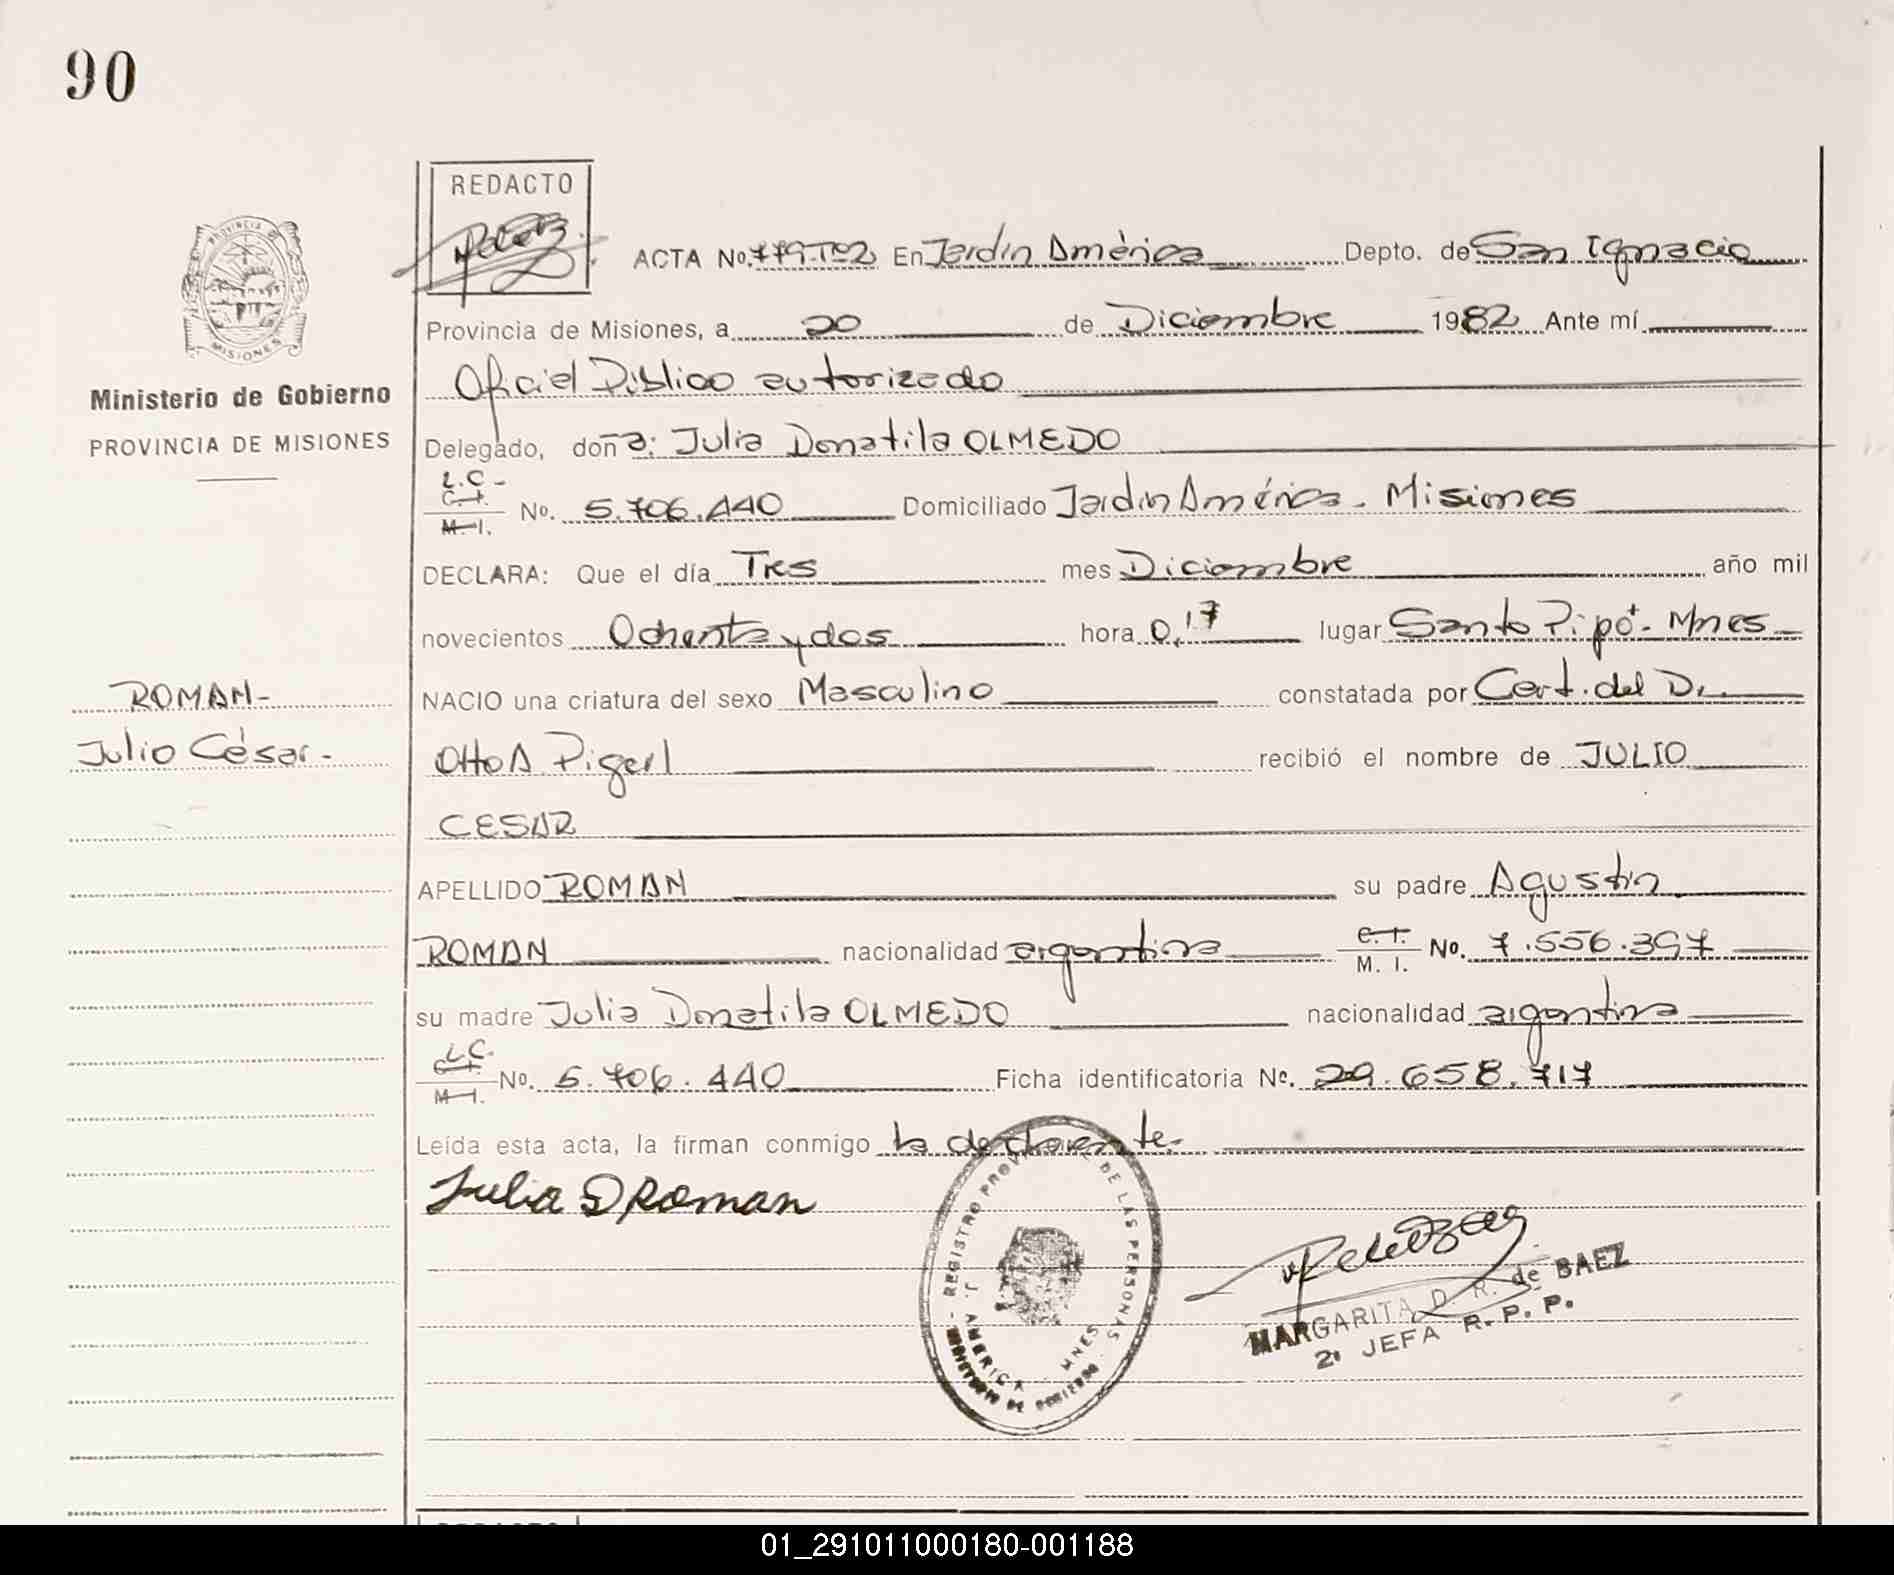 90
REDACTO
ACTA No. 779-Tº2 En Jardín América Depto. de San Ignacio
Provincia de Misiones, a 20 de Diciembre 1982 Ante mí
Oficial Público autorizado
Delegado, doña: Julia Donatila OLMEDO
L.C-
C.I.
M.I. No. 5.706.440 Domiciliado Jardín América - Misiones
DECLARA: Que el día Tres mes Diciembre año mil
novecientos Ochenta y dos hora 0,17 lugar Santo Pipó - Mnes
NACIO una criatura del sexo Masculino constatada por Cert. del Dr.
Otto A. Pigerl recibió el nombre de JULIO
CESAR
APELLIDO ROMAN su padre Agustín
ROMAN nacionalidad argentina C.I.
M. I. No. 7.556.397
su madre Julia Donatila OLMEDO nacionalidad argentina
L.C.
C.I.
M.I. No. 5.706.440 Ficha identificatoria No. 29.658.717
Leída esta acta, la firman conmigo la declarante.-
Julia D Roman
PROVINCIA DE
MISIONES
Ministerio de Gobierno
PROVINCIA DE MISIONES
ROMAN-
Julio César.-
REGISTRO PROVINCIAL DE LAS PERSONAS
J. AMERICA - MNES
MINISTERIO DE GOBIERNO
MARGARITA D. R. de BAEZ
2º JEFA R. P. P.
REDACTO
01_291011000180-001188